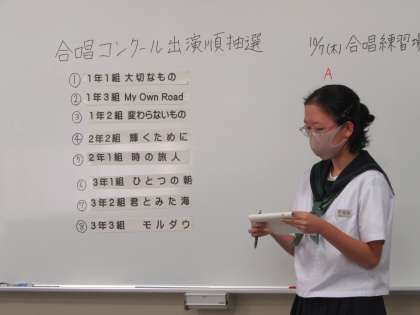 合唱コンクール出演順抽選
① 1年1組 大切なもの
② 1年3組 My Own Road
③ 1年2組 変わらないもの
④ 2年2組 輝くために
⑤ 2年1組 時の旅人
⑥ 3年1組 ひとつの朝
⑦ 3年2組 君とみた海
⑧ 3年3組 モルダウ
(木)合唱練習
A